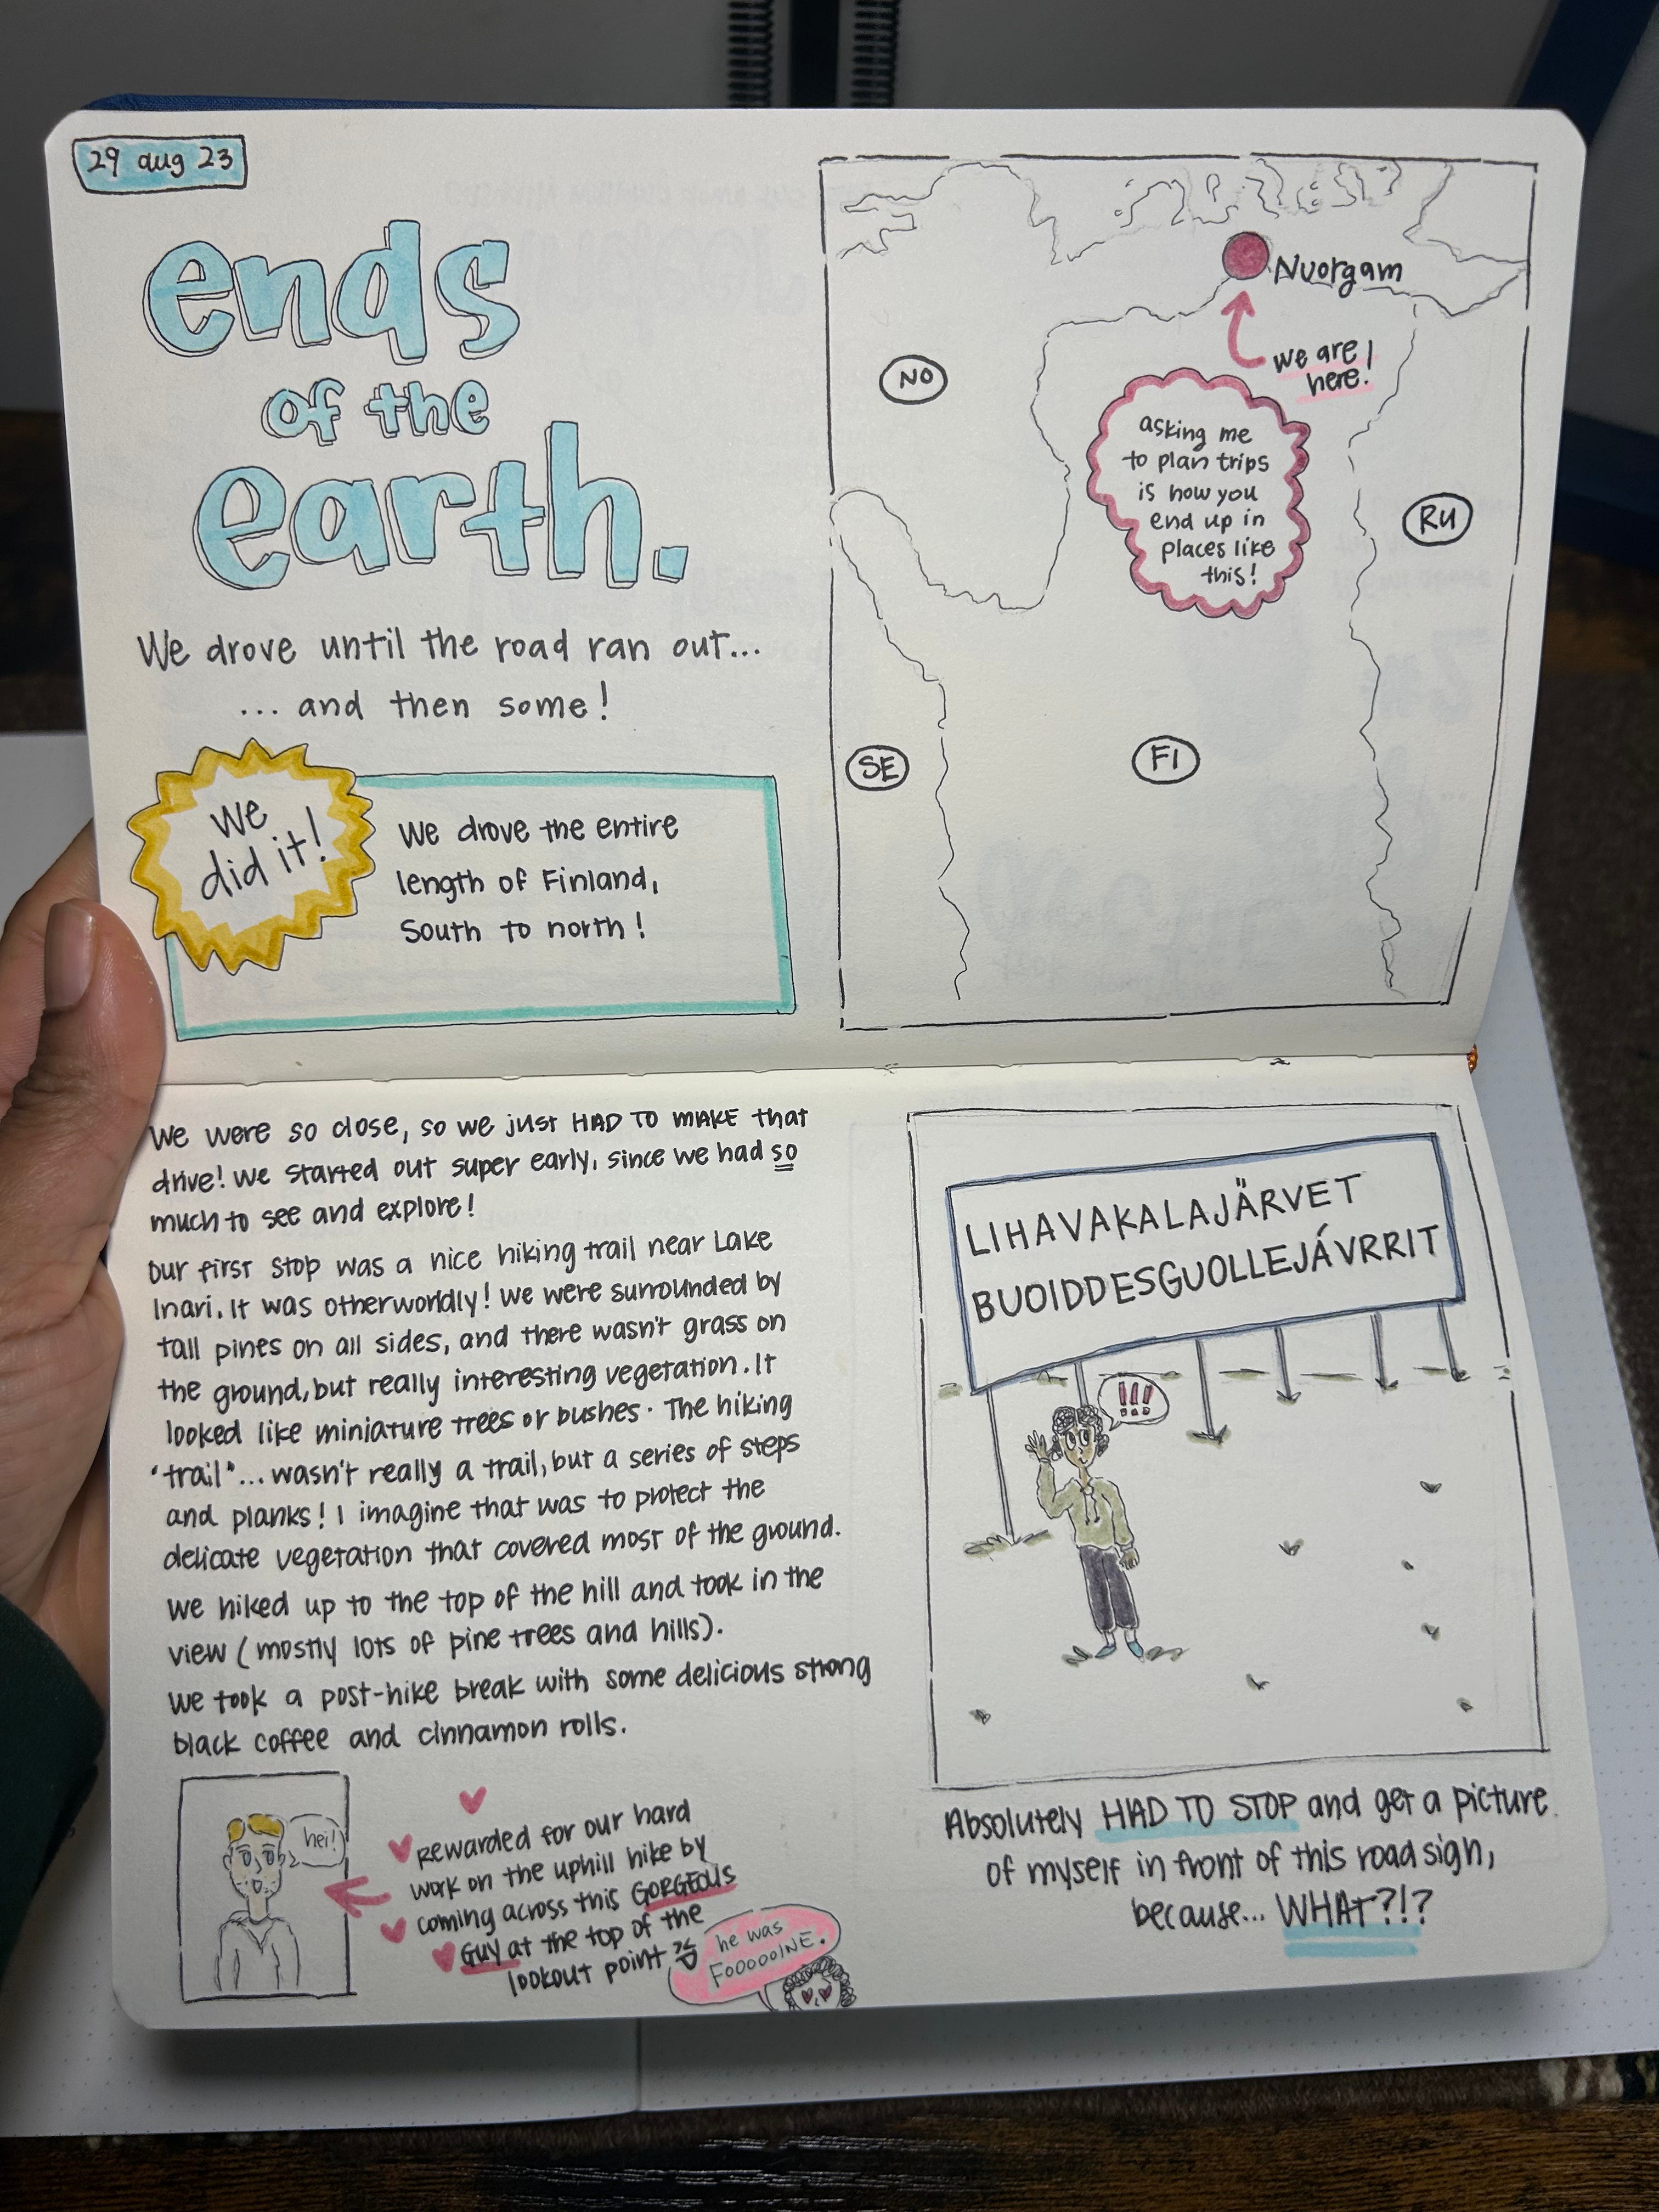 29 aug 23
ends
of the
earth.
We drove until the road ran out...
... and then some!
We
did it!
We drove the entire
length of Finland,
South to north!
Nuorgam
we are
here!
NO
asking me
to plan trips
is how you
end up in
places like
this!
RU
SE
FI
We were so close, so we just HAD TO MAKE that
drive! We started out super early, since we had so
much to see and explore!
Our first stop was a nice hiking trail near Lake
Inari. It was otherworldly! We were surrounded by
tall pines on all sides, and there wasn't grass on
the ground, but really interesting vegetation. It
looked like miniature trees or bushes. The hiking
"trail"... wasn't really a trail, but a series of steps
and planks! I imagine that was to protect the
delicate vegetation that covered most of the ground.
We hiked up to the top of the hill and took in the
view (mostly lots of pine trees and hills).
We took a post-hike break with some delicious strong
black coffee and cinnamon rolls.
hei!
Rewarded for our hard
work on the uphill hike by
coming across this GORGEOUS
GUY at the top of the
lookout point
he was
FOOOOOINE.
LIHAVAKALAJÄRVET
BUOIDDESGUOLLEJÁVRRIT
!!!
Absolutely HAD TO STOP and get a picture
of myself in front of this road sign,
because... WHAT?!?